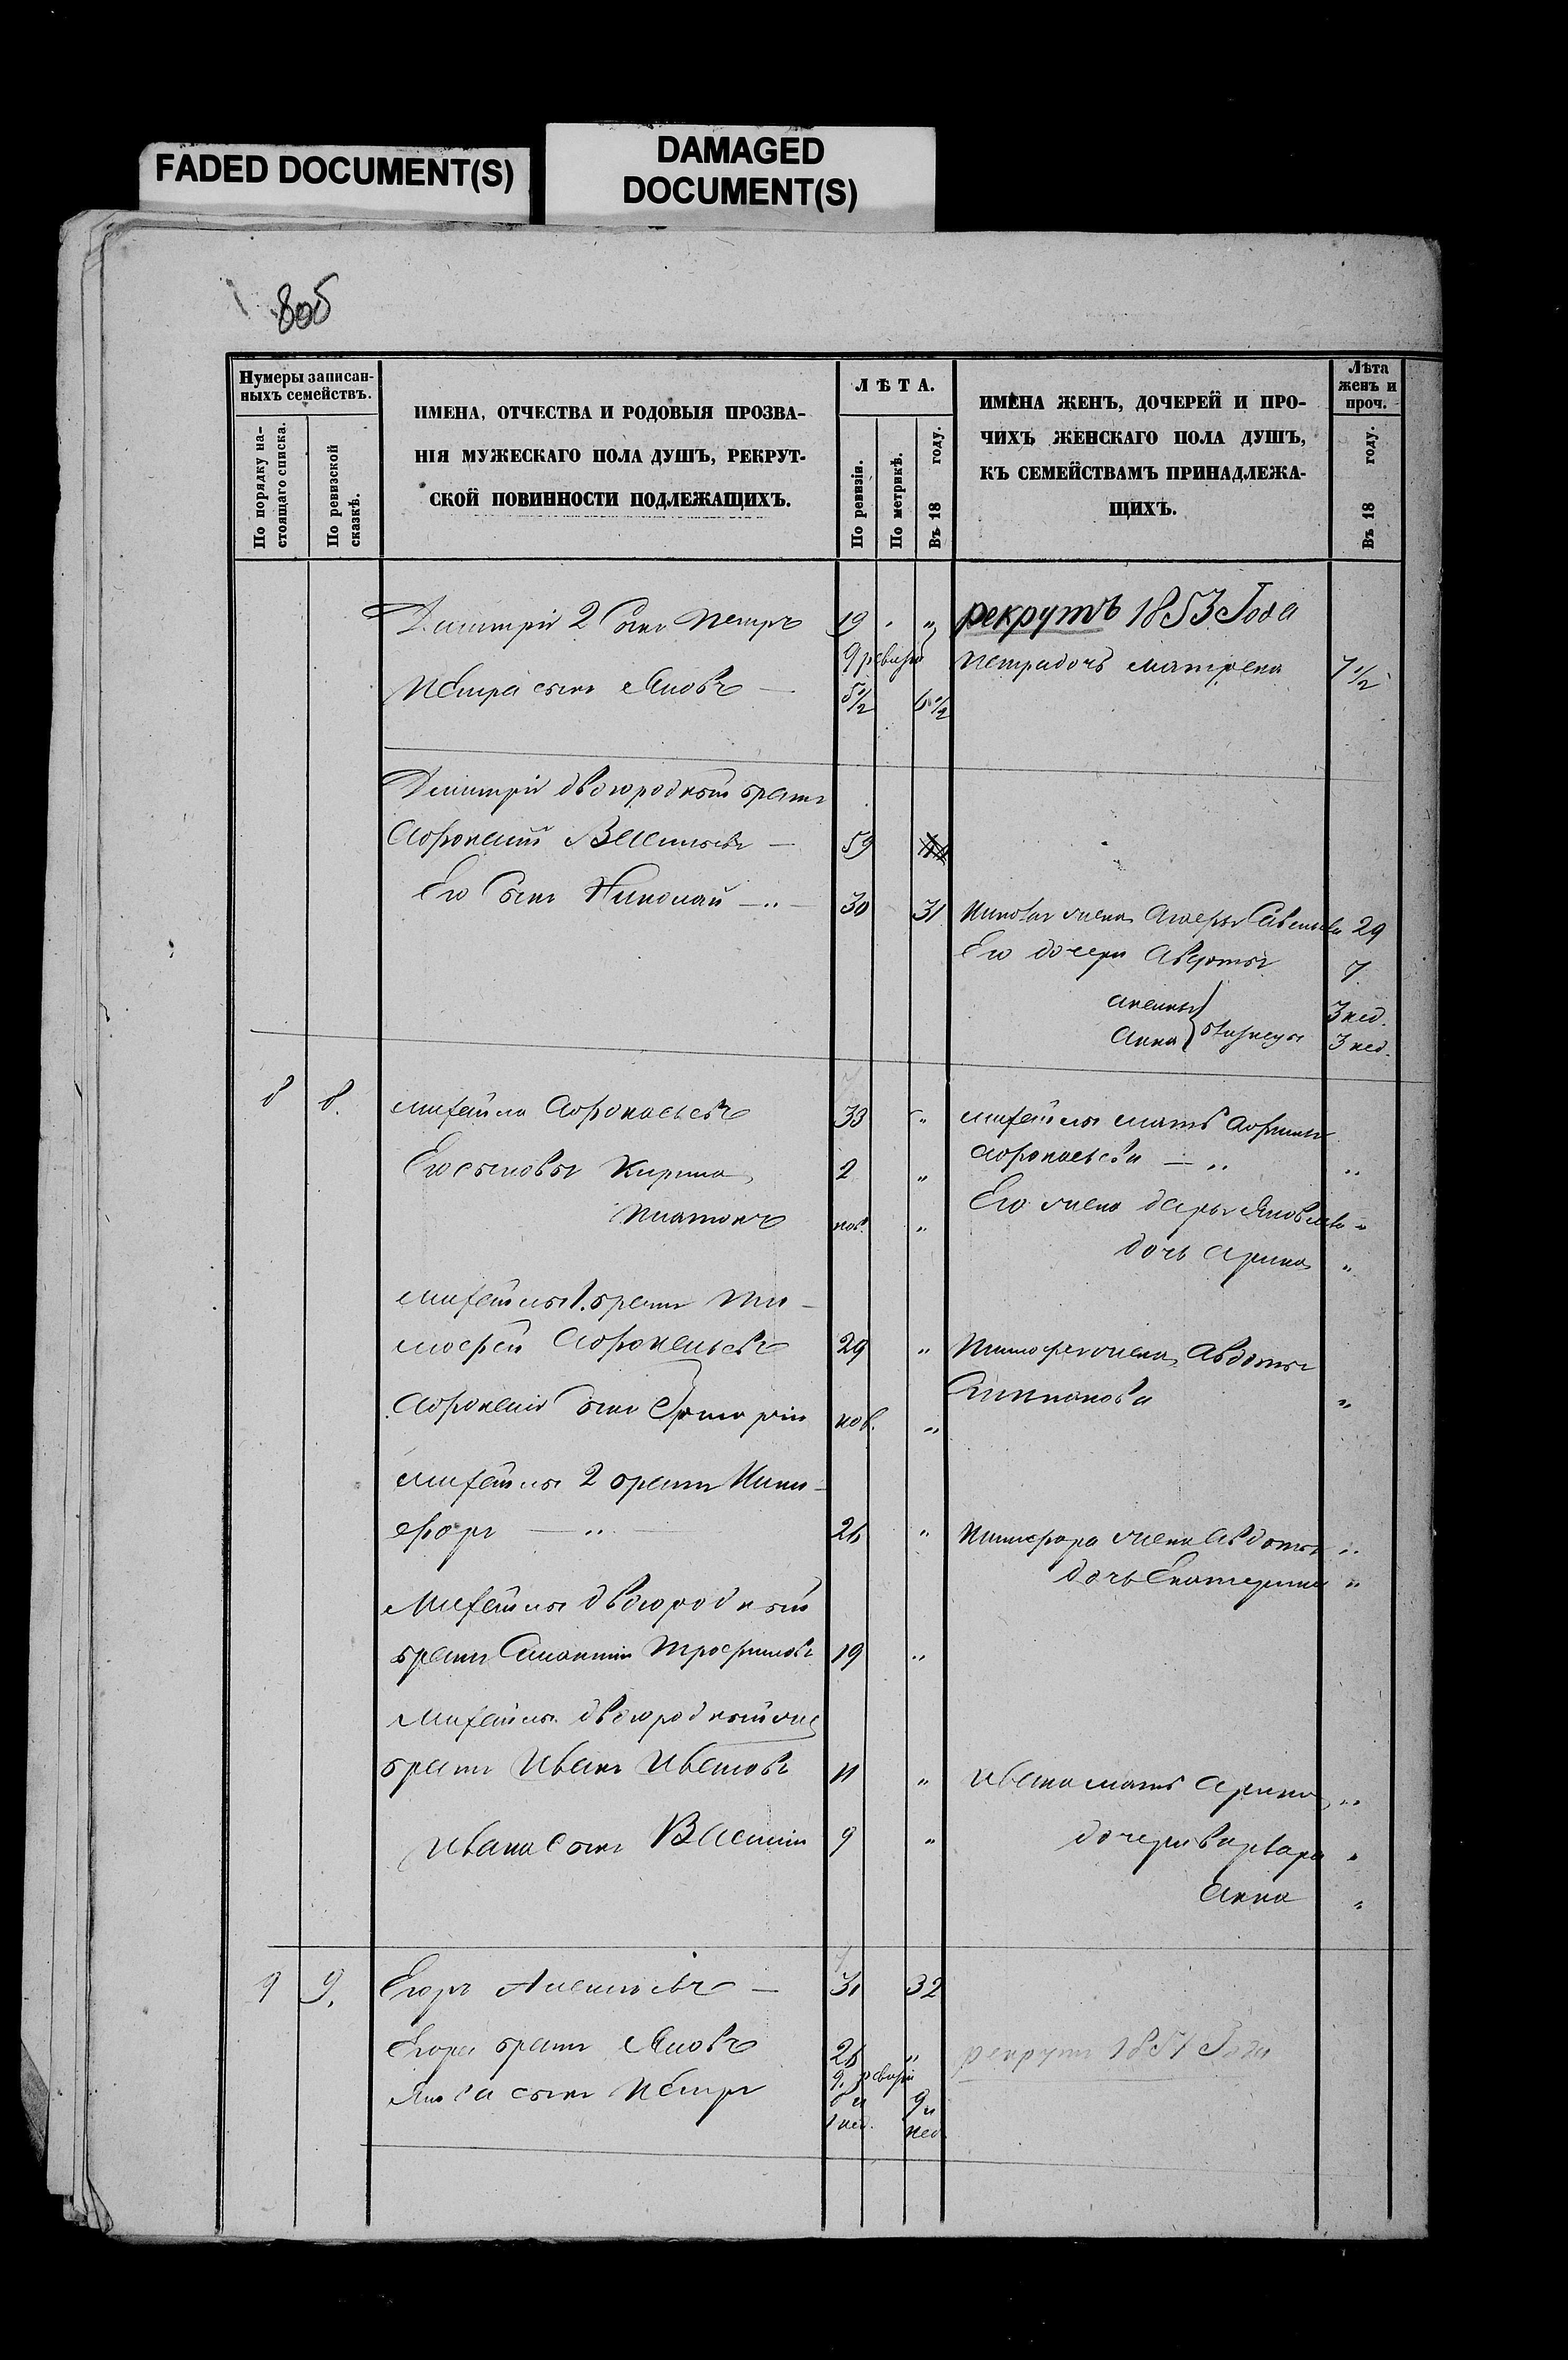 FADED DOCUMENT(S)
DAMAGED
DOCUMENT(S)
805
Нумеры записан-
ныхъ семействъ.
По порядку на-
стоящаго списка.
По ревизской
сказкѣ.
ИМЕНА, ОТЧЕСТВА И РОДОВЫЯ ПРОЗВА-
НІЯ МУЖЕСКАГО ПОЛА ДУШЪ, РЕКРУТ-
СКОЙ ПОВИННОСТИ ПОДЛЕЖАЩИХЪ.
ЛѢТА.
По ревизіи.
По метрикѣ.
Въ 18 году.
ИМЕНА ЖЕНЪ, ДОЧЕРЕЙ И ПРО-
ЧИХЪ ЖЕНСКАГО ПОЛА ДУШЪ,
КЪ СЕМЕЙСТВАМЪ ПРИНАДЛЕЖА-
ЩИХЪ.
Лѣта
женъ и
проч.
Въ 18 году.
Дмитрія 2 сынъ Петръ 19 " рекрутъ 1853 Года
9 ревизіи Петра дочь Матрена 7 1/2
Петра сынъ Яковъ — 5 1/2 6 1/2
Дмитрія двоюродный братъ
Афонасій Васильевъ — 59
Его сынъ Николай — " — 30 31 Николая жена Савельева 29
Его дочери Авдотья 7
Аксинья 3 нед.
Анна 3 нед.
8 8. Михайла Афонасьевъ 33 " Михайлы мать
Афонасьева — " "
Его сыновья Кирила 2 "
Его жена Дарья Яковлева "
Платонъ нов. "
дочь Арина "
Михайлы 1. братъ Ти-
мофей Афонасьевъ 29 " Тимофея жена Авдотья
Степанова "
Афонасія сынъ Григорій нов. "
Михайлы 2 братъ Ники-
форъ — " — 26 " Никифора жена Авдотья "
дочь Екатерина "
Михайлы двоюродный
братъ Трофимовъ 19 "
Михайлы двоюродный же
братъ Иванъ Ивановъ 11 " Ивана мать Арина "
Ивана сынъ Василій 9 " дочери Варвара "
Анна "
9 9. Егоръ Алексѣевъ — 31 32
Егора братъ Яковъ 26 " рекрутъ 1851 Года
9. ревизіи
Якова сынъ Петръ 8 и 9 и
1 нед. нед.